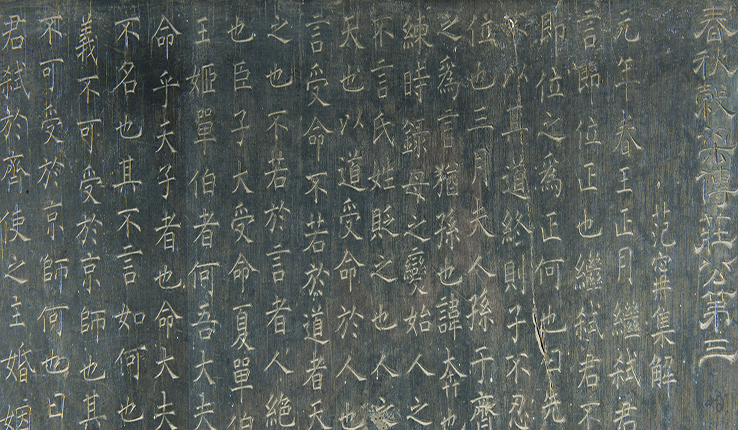 春秋穀梁傳莊公第三
范甯集解
元年春王正月繼弒君
言即位正也繼弒君不
即位之為正何也曰先
不以其道終則子不忍
位也三月夫人孫于齊
之為言猶孫也諱奔也
練時錄母之變始人之
不言氏姓貶之也人之
天也以道受命於人也
言受命不若於道者天
之也不若於言者人絕
也臣子大受命夏單伯
王姬單伯者何吾大夫
命乎天子者也命大夫
不名也其不言如何也
義不可受於京師也其
不可受於京師何也曰
君弒於齊使之主婚姻